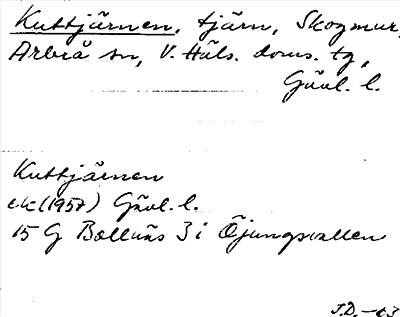 Kuttjärnen, tjärn, Skogmur,
Arbrå sn, V. Häls. doms. tg,
Gävl. l.
Kuttjärnen
ek (1957) Gävl. l.
15 G Bollnäs 3 i Öjungsvallen
J.D. -63